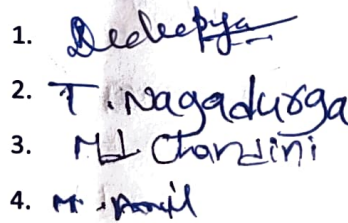 1. Deekepya
2. T. Nagadurga
3. Md Chandini
4. M. Anil